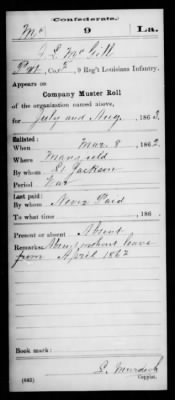 (Confederate.)
Mc 9 La.
J L McGill
Pvt, Co. I, 9 Reg't Louisiana Infantry.
Appears on
Company Muster Roll
of the organization named above,
for July and Aug, 1862.
Enlisted:
When Mar 8, 1862.
Where Mansfield
By whom St Jackson
Period War
Last paid:
By whom Never Paid
To what time , 186 .
Present or absent Absent
Remarks: Absent without leave
from April 1862
Book mark:
(642)
S. Murdock
Copyist.